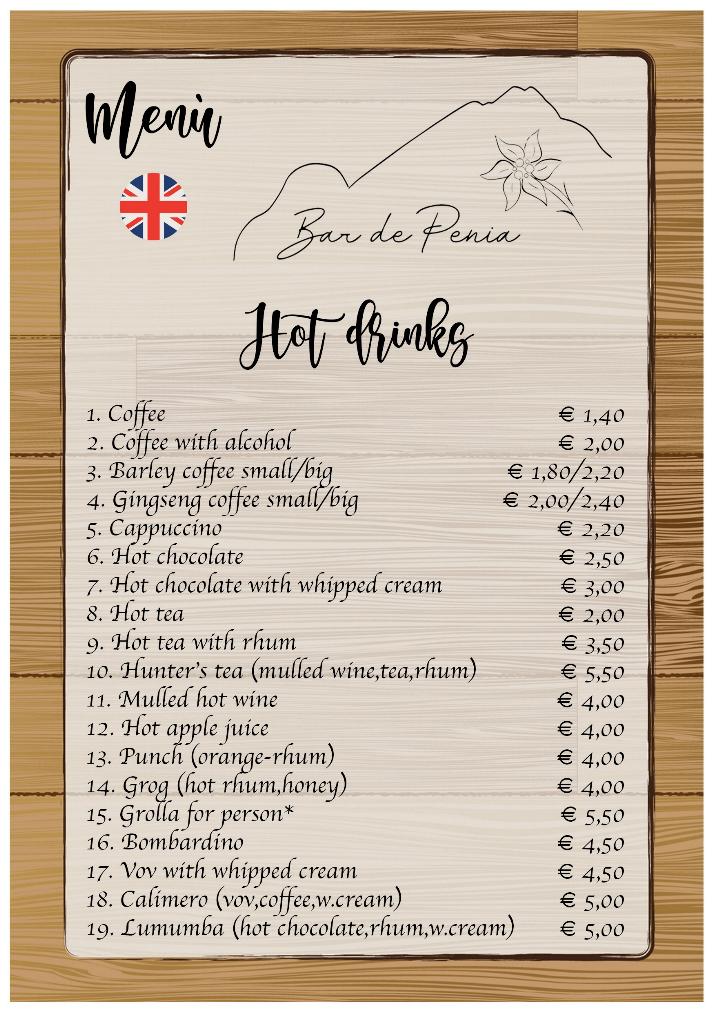 Menù
Bar de Penia
Hot drinks
1. Coffee € 1,40
2. Coffee with alcohol € 2,00
3. Barley coffee small/big € 1,80/2,20
4. Gingseng coffee small/big € 2,00/2,40
5. Cappuccino € 2,20
6. Hot chocolate € 2,50
7. Hot chocolate with whipped cream € 3,00
8. Hot tea € 2,00
9. Hot tea with rhum € 3,50
10. Hunter's tea (mulled wine,tea,rhum) € 5,50
11. Mulled hot wine € 4,00
12. Hot apple juice € 4,00
13. Punch (orange-rhum) € 4,00
14. Grog (hot rhum,honey) € 4,00
15. Grolla for person* € 5,50
16. Bombardino € 4,50
17. Vov with whipped cream € 4,50
18. Calimero (vov,coffee,w.cream) € 5,00
19. Lumumba (hot chocolate,rhum,w.cream) € 5,00